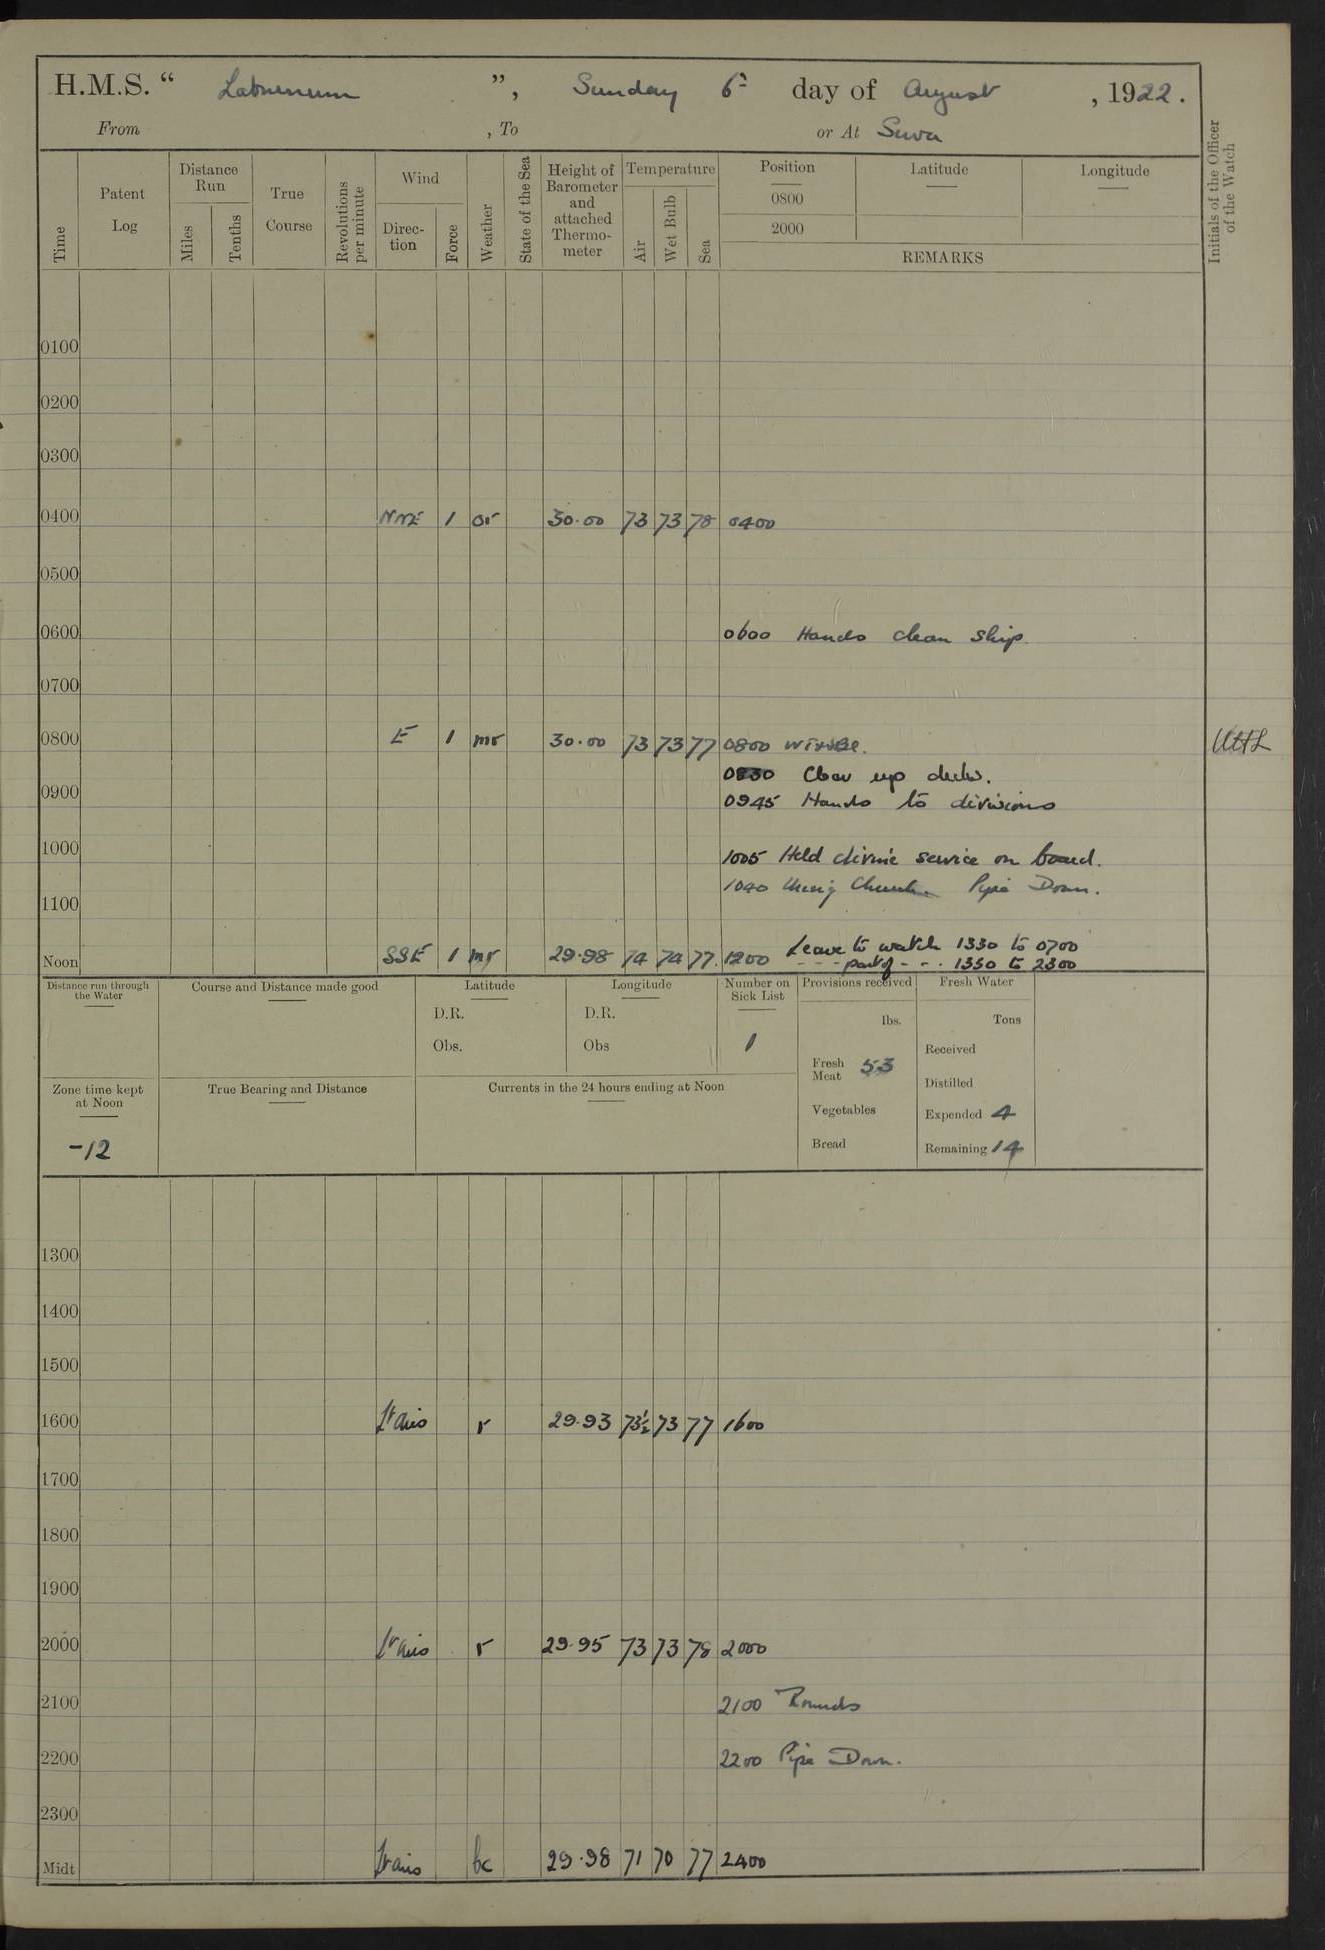 H.M.S. " Laburnum ", Sunday 6th day of August, 1922.
From , To or At Suva
Time
Patent Log
Distance Run
Miles
Tenths
True Course
Revolutions per minute
Wind
Direction
Force
Weather
State of the Sea
Height of Barometer and attached Thermometer
Temperature
Air
Wet Bulb
Sea
Position
0800
2000
Latitude
Longitude
REMARKS
Initials of the Officer of the Watch
0100
0200
0300
0400 NNE 1 or 30.00 73 73 78 0400
0500
0600 0600 Hands clean ship.
0700
0800 E 1 mr 30.00 73 73 77 0800
0830 Clear up decks.
0900
0945 Hands to divisions
1000 1005 Held divine service on board.
1040 Church. Pipe Down.
1100
Noon SSE 1 mr 29.98 74 74 77 1200 Leave to watch 1330 to 0700
- - - part of - - - 1330 to 2300
Distance run through the Water
Course and Distance made good
Latitude
D.R.
Obs.
Longitude
D.R.
Obs
Number on Sick List
1
Provisions received
lbs.
Fresh Meat 53
Vegetables
Bread
Fresh Water
Tons
Received
Distilled
Expended 4
Remaining 14
Zone time kept at Noon
-12
True Bearing and Distance
Currents in the 24 hours ending at Noon
1300
1400
1500
1600 Lt airs r 29.93 73½ 73 77 1600
1700
1800
1900
2000 Lt airs r 29.95 73 73 78 2000
2100 2100 Rounds
2200 2200 Pipe Down.
2300
Midt Lt airs bc 29.98 71 70 77 2400